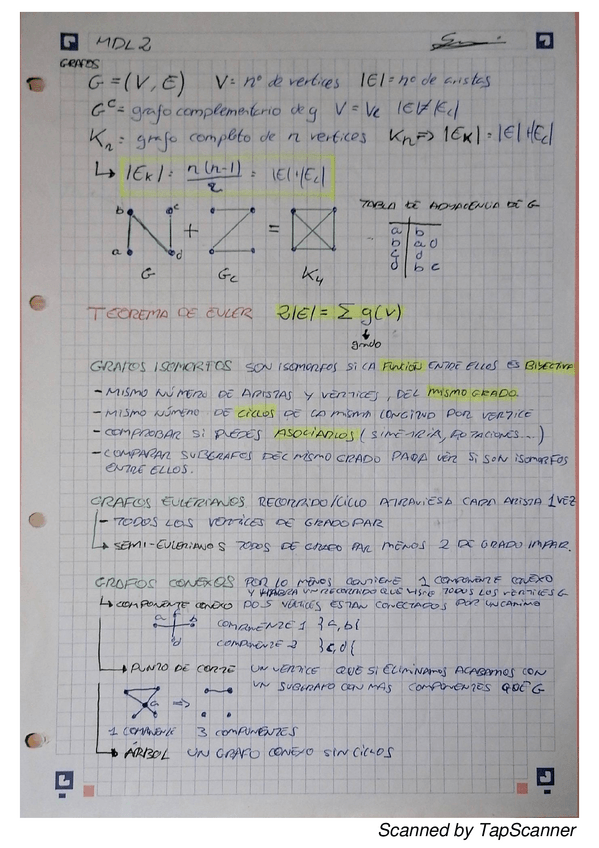 MDL 2
GRAFOS
G = (V, E) V = nº de vertices |E| = nº de aristas
G^c = grafo complementario de g V = Vc |E|≠|Ec|
Kn = grafo completo de n vertices Kn => |EK| = |E|+|Ec|
↳ |EK| = n(n-1)/2 = |E|+|Ec|
TABLA DE ADYACENCIA DE G
b c a d + = 
a | b
b | a d
c | d
d | b c
G Gc K4
TEOREMA DE EULER 2|E| = Σ g(v)
grado
GRAFOS ISOMORFOS SON ISOMORFOS SI LA FUNCIÓN ENTRE ELLOS ES BIYECTIVA
- MISMO NÚMERO DE ARISTAS Y VERTICES, DEL MISMO GRADO.
- MISMO NÚMERO DE CICLOS DE LA MISMA LONGITUD POR VERTICE
- COMPROBAR SI PUEDES ASOCIARLOS (SIMETRÍA, ROTACIONES...)
- COMPARAR SUBGRAFOS DEL MISMO GRADO PARA VER SI SON ISOMORFOS
ENTRE ELLOS.
GRAFOS EULERIANOS RECORRIDO/CICLO ATRAVIESA CADA ARISTA 1 VEZ
- TODOS LOS VERTICES DE GRADO PAR
↳ SEMI-EULERIANOS TODOS DE GRADO PAR MENOS 2 DE GRADO IMPAR.
GRAFOS CONEXOS POR LO MENOS CONTIENE 1 COMPONENTE CONEXO
Y HABRA UN RECORRIDO QUE VISITE TODOS LOS VERTICES G
↳ COMPONENTE CONEXO DOS VERTICES ESTAN CONECTADOS POR UN CAMINO
a c b d
COMPONENTE 1 }a, b{
COMPONENTE 2 }c, d{
PUNTO DE CORTE UN VERTICE QUE SI ELIMINAMOS ACABAMOS CON
UN SUBGRAFO CON MAS COMPONENTES QUE G
G =>
1 COMPONENTE 3 COMPONENTES
ÁRBOL UN GRAFO CONEXO SIN CICLOS
Scanned by TapScanner